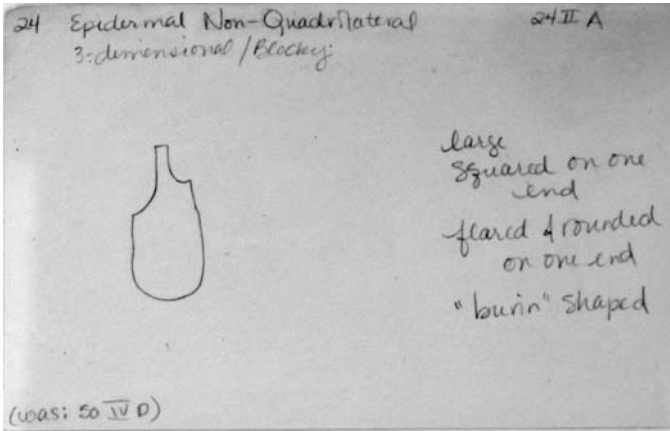 24 Epidermal Non-Quadrilateral 24 II A
3-dimensional/Blocky:
large
squared on one
end
flared & rounded
on one end
"burin" shaped
(was: 50 IV D)